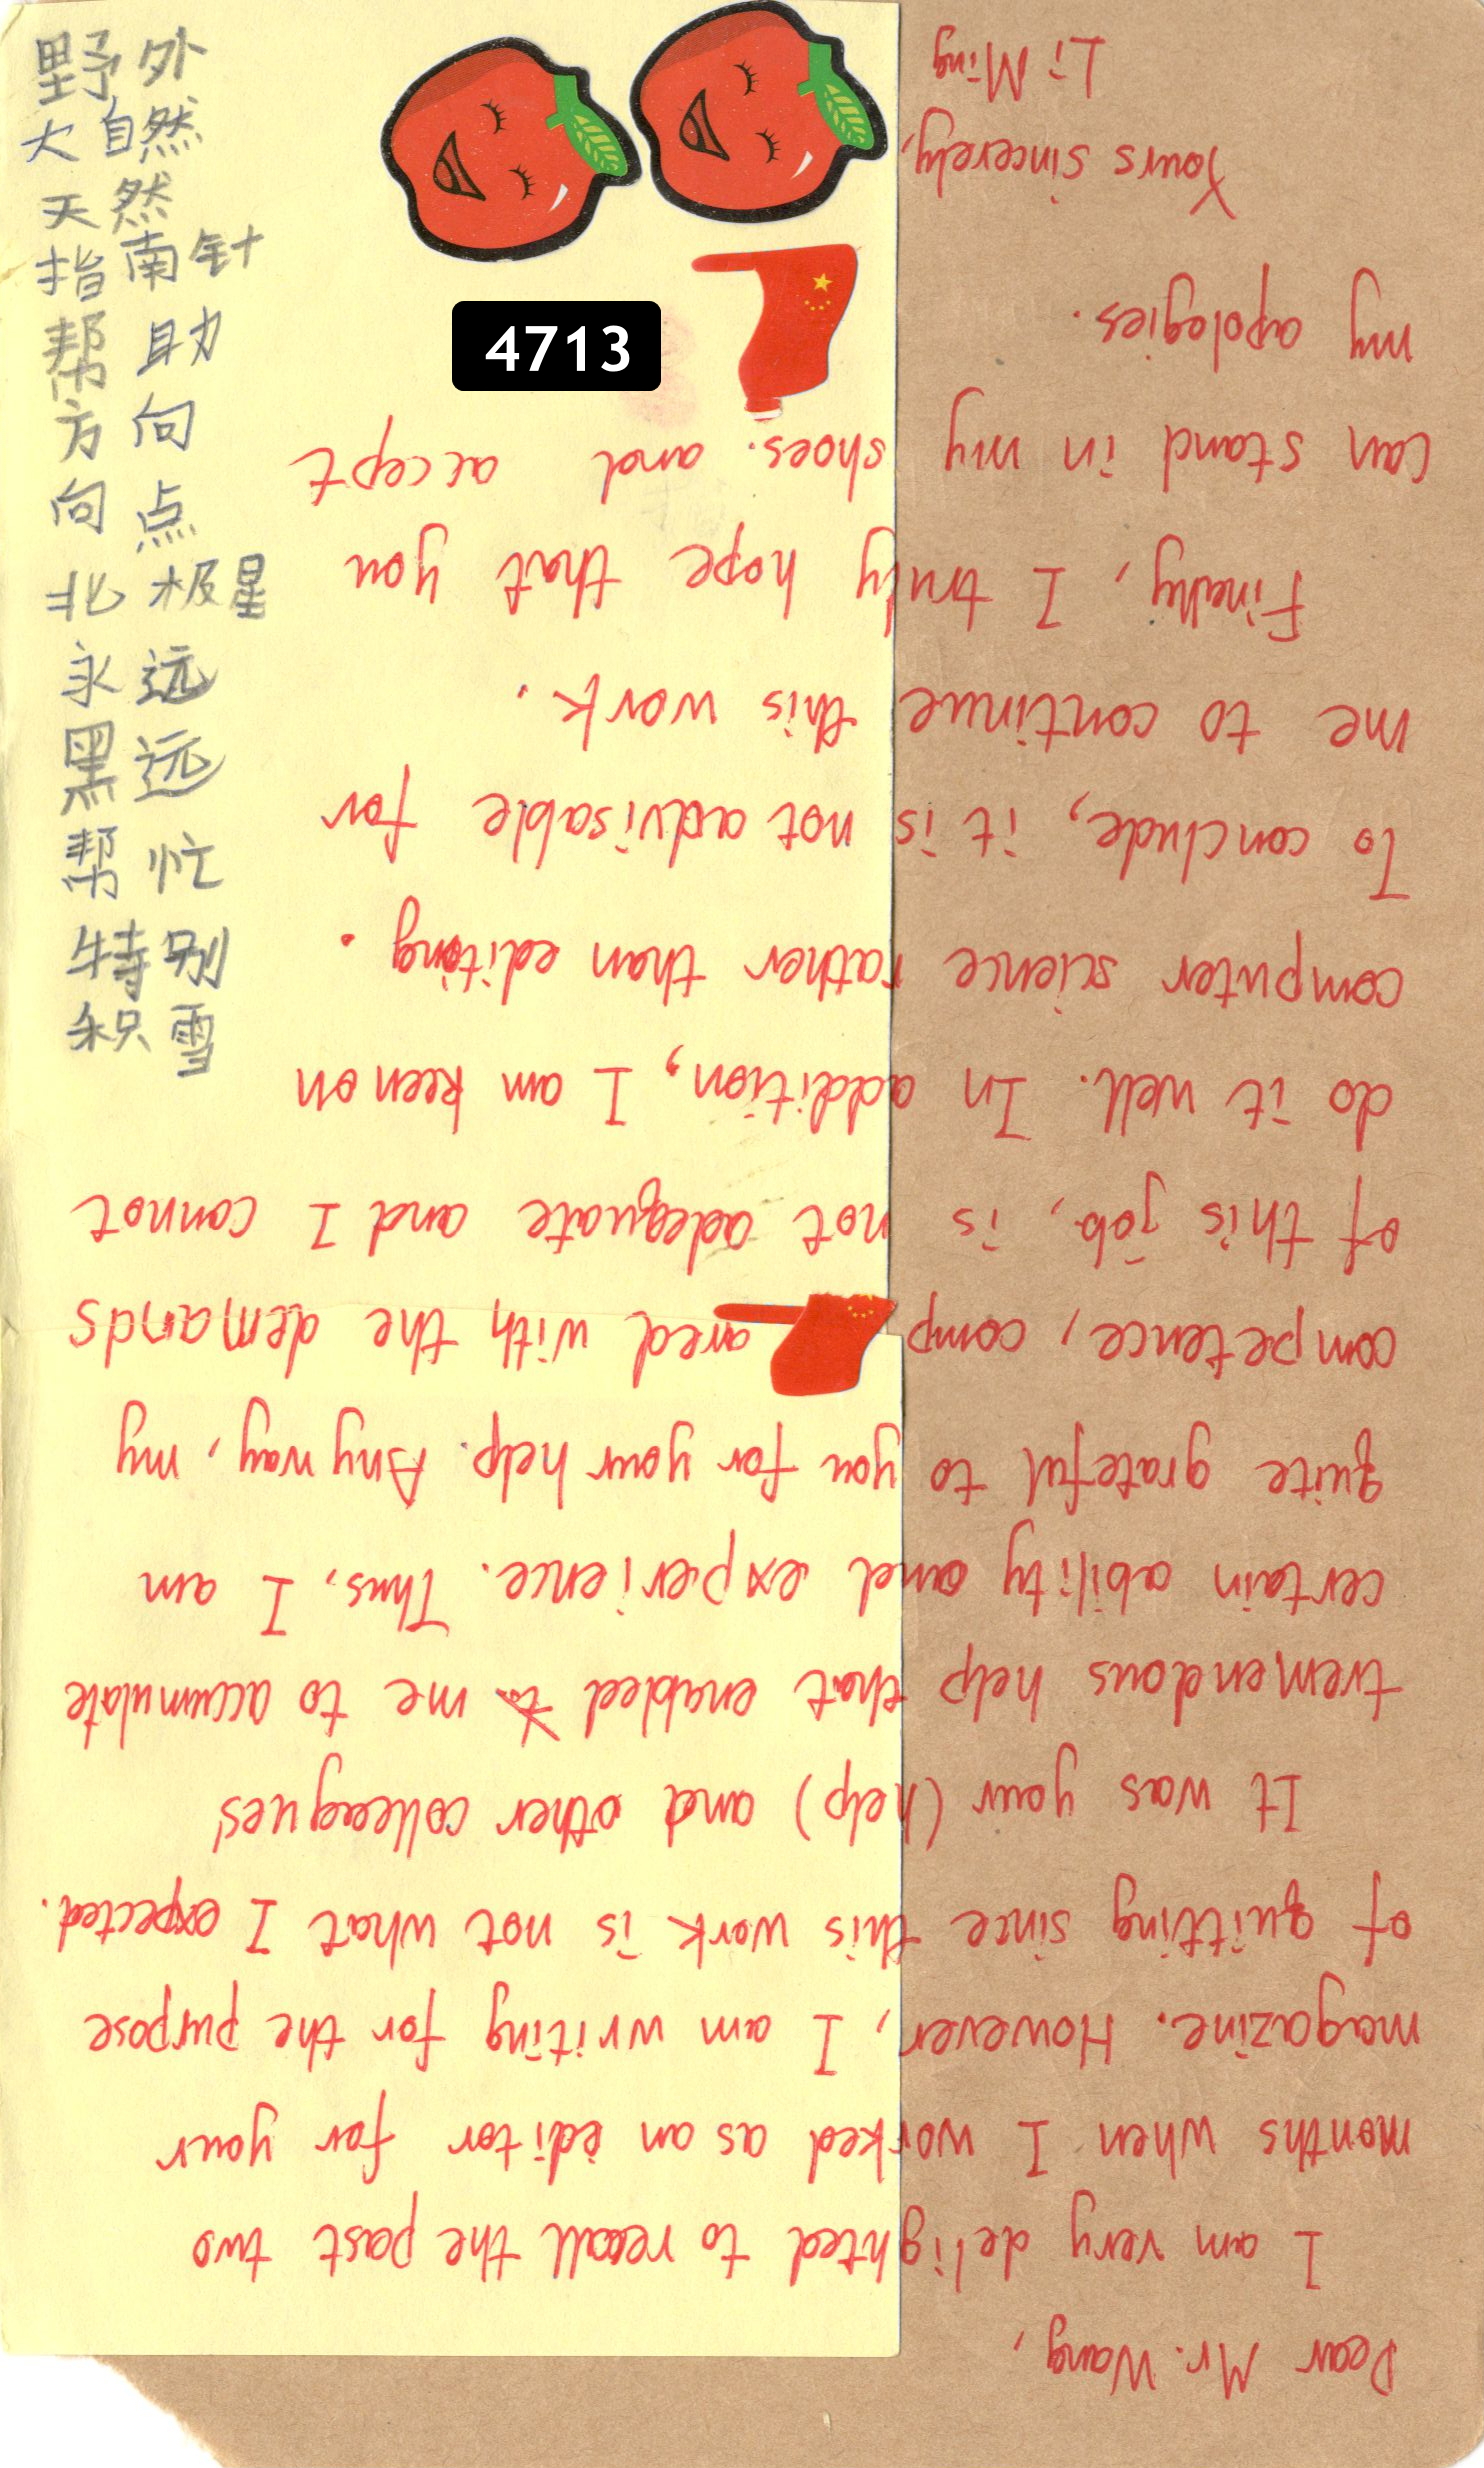 野外
大自然
天然
指南针
帮助
方向
向点
北极星
永远
黑远
帮忙
特别
积雪
4713
Dear Mr. Wang,
I am very delighted to recall the past two
months when I worked as an editor for your
magazine. However, I am writing for the purpose
of quitting since this work is not what I expected.
It was your (help) and other colleagues'
tremendous help that enabled me to accumulate
certain ability and experience. Thus, I am
quite grateful to you for your help. Anyway, my
competence, comp ared with the demands
of this job, is not adequate and I connot
do it well. In addition, I am keen on
computer science rather than editing.
To conclude, it is not advisable for
me to continue this work.
Finally, I truly hope that you
can stand in my shoes. and accept
my apologies.
Yours sincerely,
Li Ming